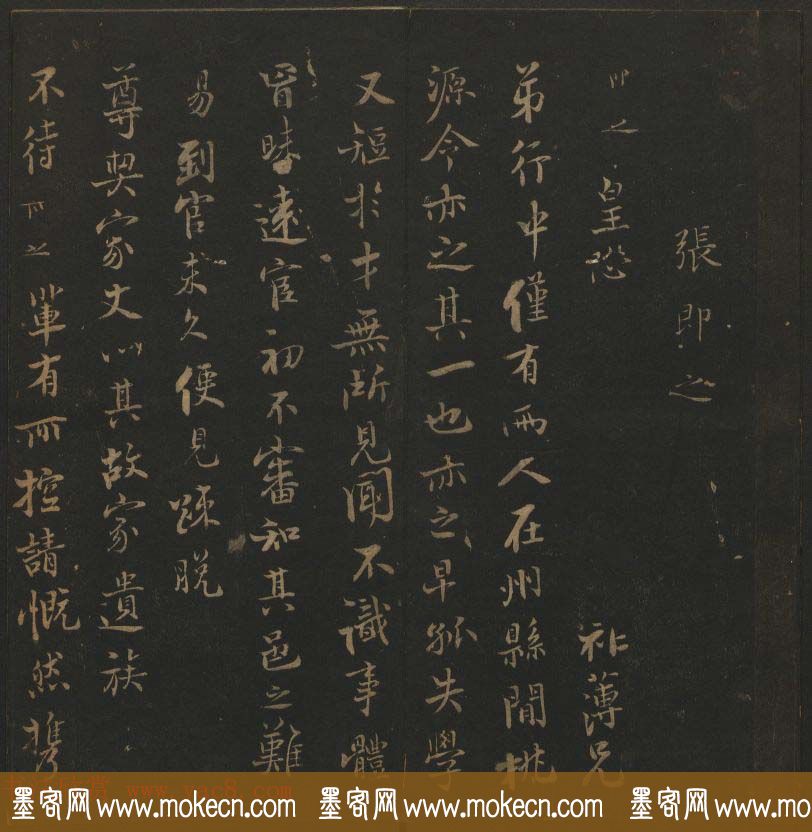 張即之
即之皇恐 祚薄兄
弟行中僅有兩人在州縣間桃
源令亦之其一也亦之早孤失學
又短於才無所見聞不識事體
冒昧遠宦初不審知其邑之難
易到官未久便見疎脫
尊契家丈以其故家遺族
不待即之輩有所控請慨然攜
墨客网 www.mokecn.com 墨客网 www.mokecn.com 墨客网 www.mo
www.yac8.com